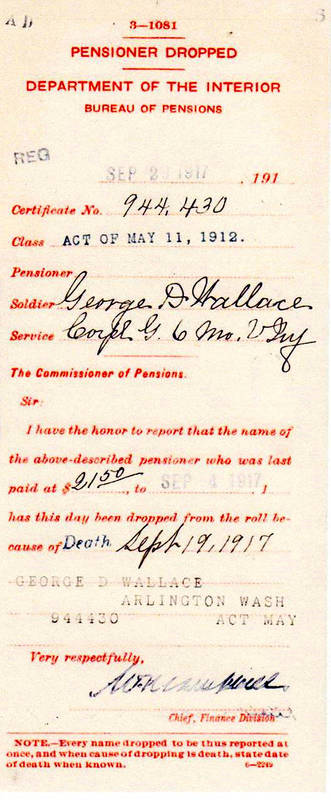 A D
3—1081
PENSIONER DROPPED
DEPARTMENT OF THE INTERIOR
BUREAU OF PENSIONS
REG
SEP 29 1917, 191
Certificate No. 944,430
Class ACT OF MAY 11, 1912.
Pensioner
Soldier George D Wallace
Service G. 6 Mo. V Inf
The Commissioner of Pensions.
Sir:
I have the honor to report that the name of
the above-described pensioner who was last
paid at $21.50, to SEP 4 1917, 1
has this day been dropped from the roll be-
cause of Death Sept 19, 1917
GEORGE D WALLACE
ARLINGTON WASH
944430 ACT MAY
Very respectfully,
Chief, Finance Division
NOTE.—Every name dropped to be thus reported at
once, and when cause of dropping is death, state date
of death when known. 6—2249